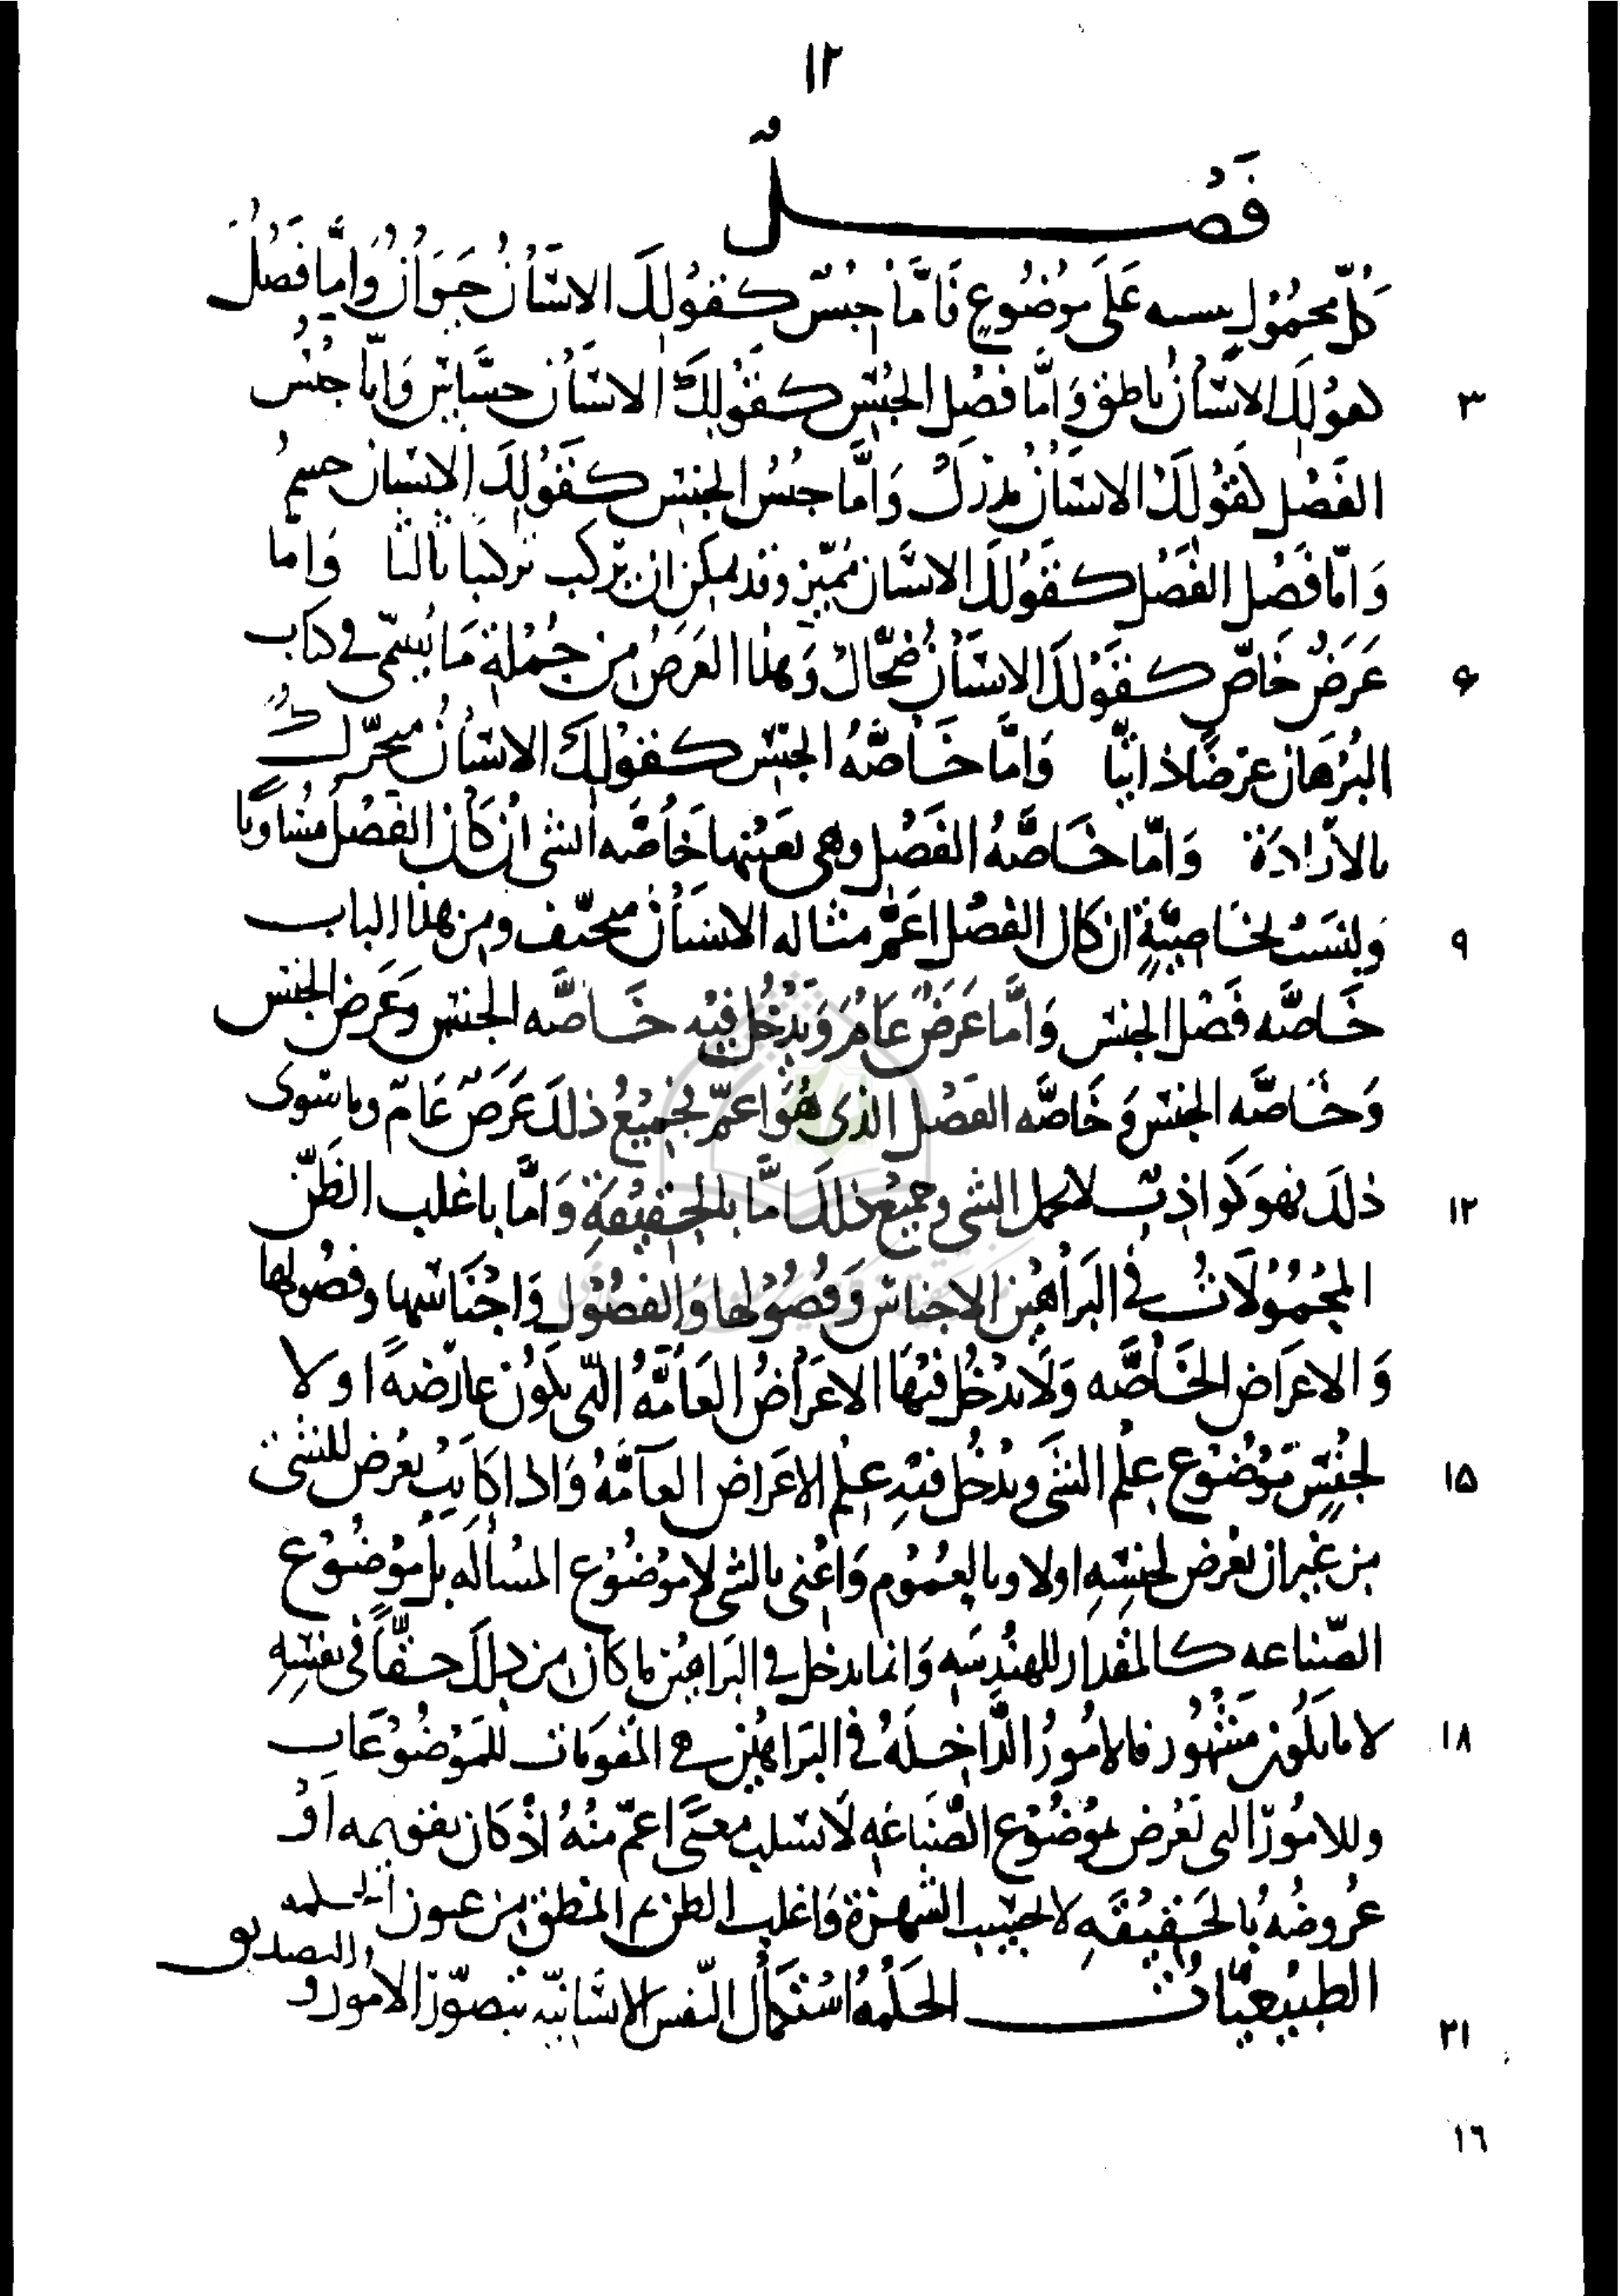 ١٢
فَصْلٌ
كُلّ محمُوْل يسبه عَلَى مَوْضُوعٍ فَامَّا جِنْسٌ كقَوْلِكَ الانسَانُ حَيَوَانٌ وَامَّا فَصْلٌ
٣ كقوْلِكَ الانسَانُ ناطق وَامَّا فصْل الجنْس كقَوْلِكَ الانسَان حسَّاسٌ وَامَّا جنْسُ
الفَصْل كقَوْلكَ الانسَانُ مدْرَكٌ وَامَّا جنْسُ الجنس كقَوْلِكَ الانسان جسمٌ
وَامَّا فَصْل الفَصْل كقَوْلكَ الانسَان مُميّز وقد يمكن ان يتركب تركيبًا ثالثًا وَامّا
۶ عَرَضٌ خَاصّ كقَوْلكَ الانسَانُ ضحَّاكٌ وَهذا العَرَضُ من جُمْلَةِ مَا يُسمّى فى كتاب
البُرْهان عرَضًا ذاتيًّا وَامَّا خَاصَّةُ الجنْس كقوْلكَ الانسَانُ متحَرّكٌ
بالأرَادَة وَامَّا خَاصَّةُ الفَصْل وهى بعَيْنها خَاصَّه الشى ان كَانَ الفَصْل مُسَاويا
٩ وَليْسَتْ بخَاصِّيّةٍ ان كان الفَصْل اعَمّ مثاله الانسَانُ متحيّف ومن هذا الباب
خَاصَّه فَصْل الجنس وَامَّا عَرَضٌ عَامٌّ وَيَدْخُل فيْه خَاصَّه الجنس وعَرَض الجنس
وَخَاصَّه الجنس وَخَاصَّه الفَصْل الذى هُوَ اعمّ فجميْعُ ذلكَ عَرَضٌ عَامّ وما سوى
١٢ ذلكَ فهوَ كَواذبٌ لا تحمل الشى وجميعُ ذلكَ امَّا بالحقيْقَةِ وَامَّا باغلب الظَنّ
المحْمُوْلاتُ فى البَرَاهين الاجناس وَفصُوْلها وَالفصُوْل وَاجْنَاسها وفصُولها
وَالاعرَاض الخَاصَّه وَلا يدْخُل فيْهَا الاعرَاضُ العَامَّةُ التى يكون عارضةً اولا
١۵ لجنْسٍ مَوْضُوع عِلْم الشى ويدْخُل فيْهِ عِلْم الاعرَاض العَامَّةُ وَاذا كانت يعْرض للشى
من غير ان تعْرض لجنْسِهِ اولا وبالعُمُوم وَاعْنى بالشى لا مَوْضُوْع المسْألَه بل مَوْضُوْع
الصّناعه كالمقدار للهندسَه وَانما يدخل فى البَرَاهين ما كان من ذلكَ حقًّا فى نفسِهِ
١٨ لا ما يكُون مَشْهُور فالامُورُ الدَّاخِلَةُ فى البَرَاهين هى المقومات للمَوْضُوْعَات
وللامُوْر التى تعْرض لموْضُوْع الصّنَاعَه لا بسلب معنَى اعمّ منْهُ اذْ كان بتقويمه اوْ
عُروضُهُ بالحَقيْقَةِ لا بحسب الشهْرَة وَاغلب الظن تم المنطق من عيون الحكمه
الطبيْعيّاتُ الحكْمَةُ اسْتكْمَالُ النّفس الانسَانيّه بتصَوّر الامُور و
والتصديق
٢١
١٦